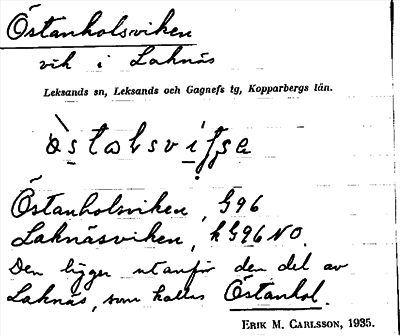 Östanholsviken
vik i Laknäs
Leksands sn, Leksands och Gagnefs tg, Kopparbergs län.
Östanholsviken, G96
Laknäsviken, kG96NO.
Den ligger utanför den del av
Laknäs, som kallas Östanhol.
ERIK M. CARLSSON, 1935.